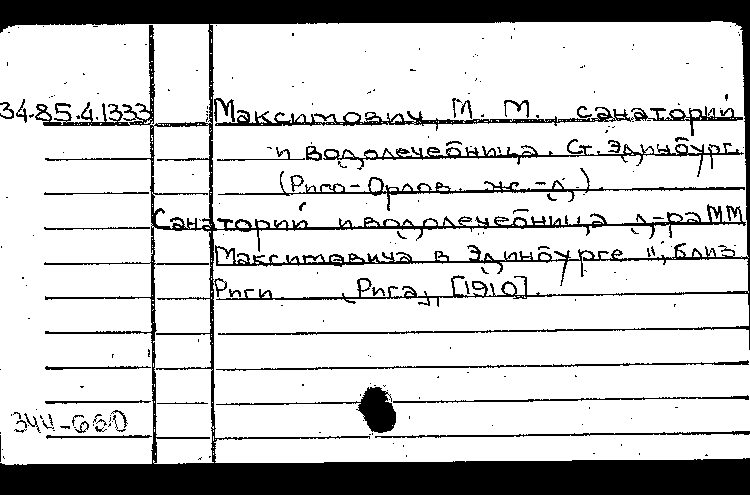 34-85.4.1333 Максимович, М. М., санаторий
и водолечебница. Ст. Эдинбург.
(Риго-Орлов. ж.-д.).
Санаторий и водолечебница д-ра М М
Максимовича в Эдинбурге II, близ
Риги. Рига, [1910].
344-660